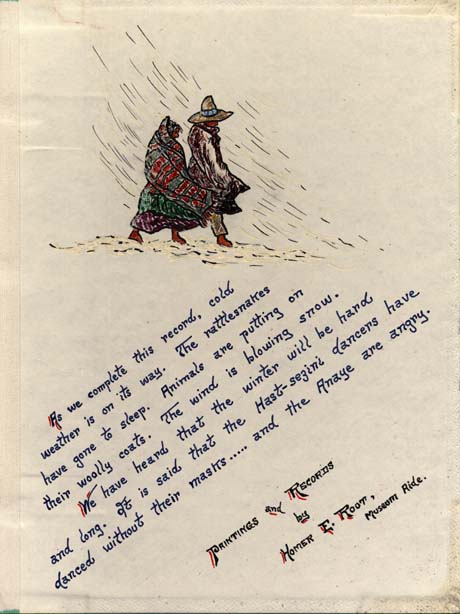 As we complete this record, cold
weather is on its way. The rattlesnakes
have gone to sleep. Animals are putting on
their woolly coats. The wind is blowing snow.
We have heard that the winter will be hard
and long. It is said that the Hast-sejini dancers have
danced without their masks..... and the Anaye are angry.
PAINTINGS and RECORDS
by
HOMER E. ROOT,
Museum Aide.